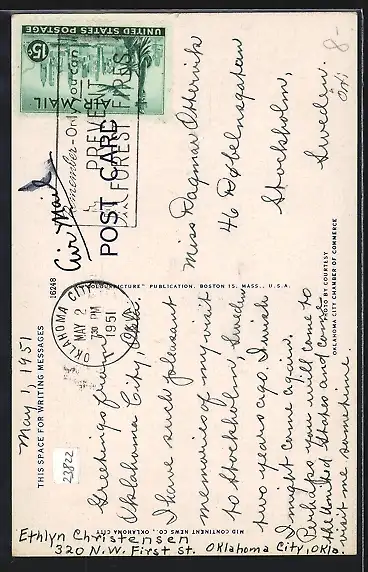 May 1, 1951
THIS SPACE FOR WRITING MESSAGES
Greetings from
Oklahoma City, Okla.
I have such pleasant
memories of my visit
to Stockholm, Sweden
two years ago. I wish
I might come again.
Perhaps you will come to
the United States and come
visit me sometime.
Ethlyn Christensen
320 N.W. First St. Oklahoma City, Okla.
MID CONTINENT NEWS CO., OKLAHOMA CITY
23822
16248
"COLOURPICTURE" PUBLICATION, BOSTON 15, MASS., U.S.A.
PHOTO BY COURTESY
OKLAHOMA CITY CHAMBER OF COMMERCE
OKLAHOMA CITY
MAY 2
7 30 PM
1951
Air Mail
POST CARD
Remember - Only You can
PREVENT
FOREST FIRES
UNITED STATES POSTAGE
15¢
AIR MAIL
Miss Dagmar
46 Döbelnsgatan
Stockholm,
Sweden.
8-